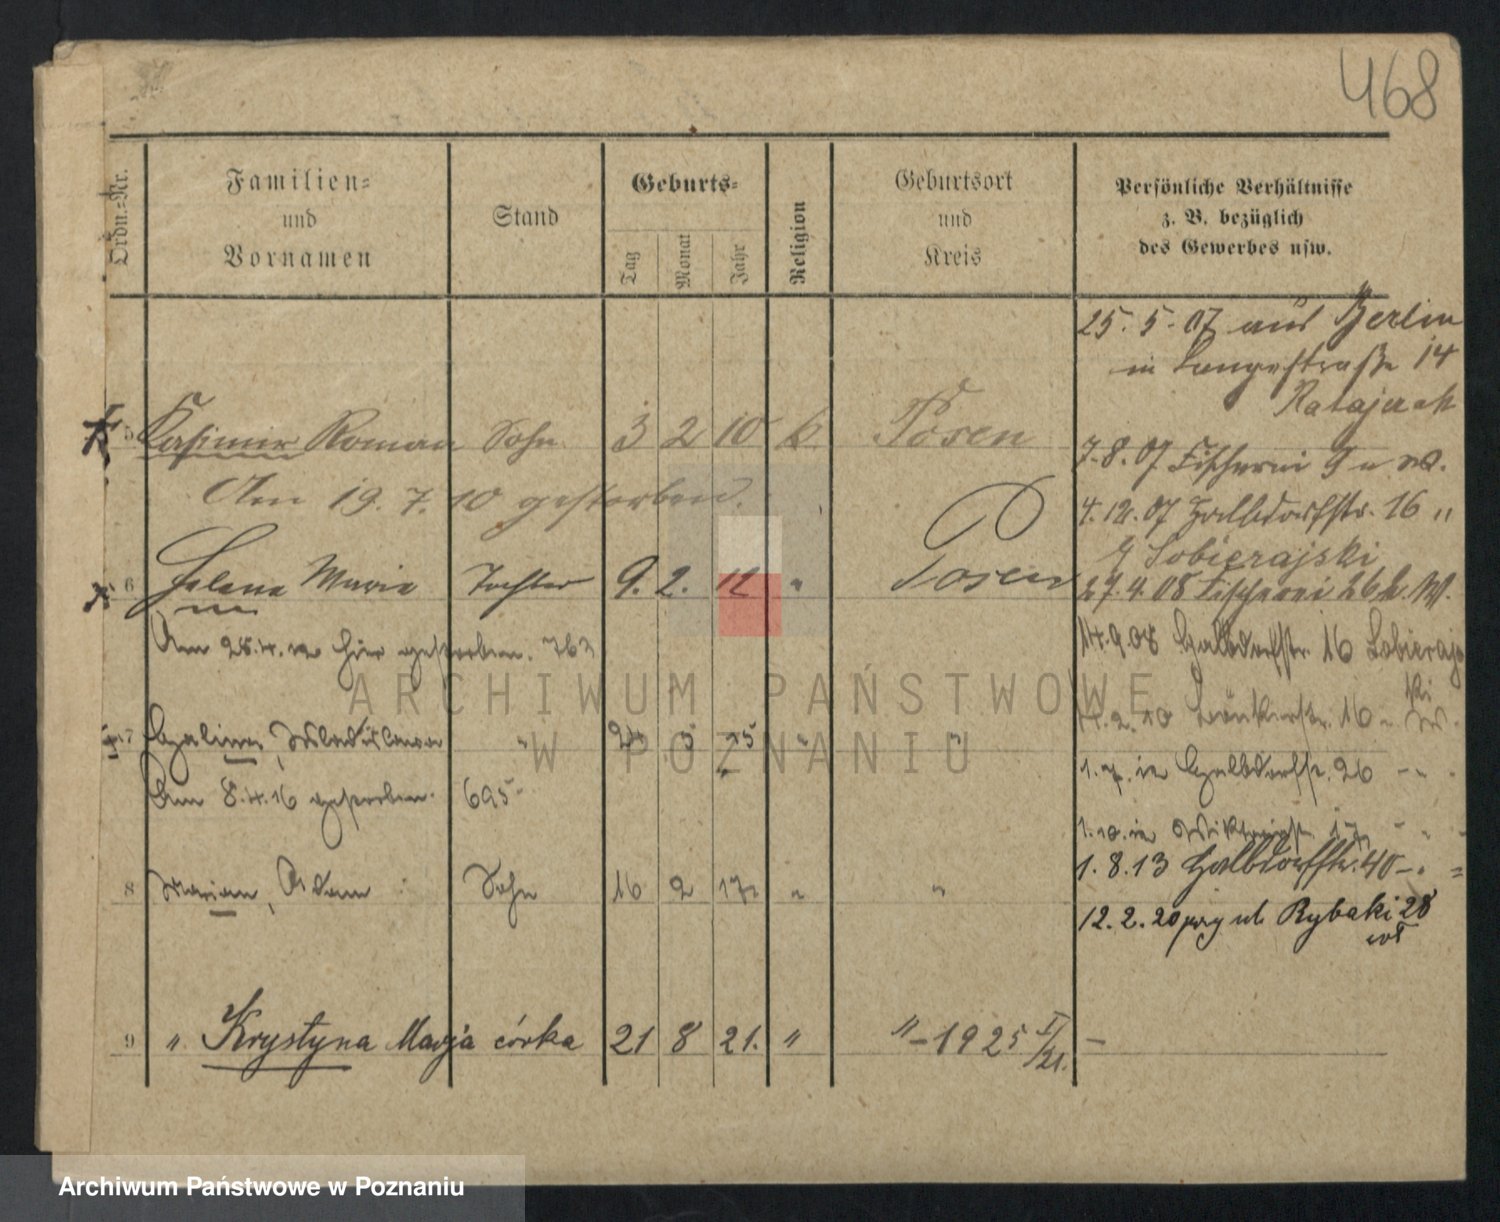 468
Ordn.-Nr.
Familien-
und
Vornamen
Stand
Geburts-
Tag
Monat
Jahr
Religion
Geburtsort
und
Kreis
Persönliche Verhältnisse
z. B. bezüglich
des Gewerbes usw.
25. 5. 07 aus Berlin
in Langestraße 14
Ratajczak
5 Kasimir Roman Sohn 3 2 10 k. Posen
7. 8. 07 Fischerei 9
Am 19. 7. 10 gestorben.
4. 12. 07 Halbdorfstr. 16 "
Sobierajski
6 Helene Marie Tochter 9. 2. 12 " Posen
27. 4. 08 Fischerei 26 W.
Am 28.4.12 hier gestorben. 763
14. 9. 08 Halbdorfstr. 16 Sobierajski
ARCHIWUM PAŃSTWOWE
W POZNANIU
7 Halina, Wladislawa " 24 5 15 " "
10 16
1. in Halbdorfstr. 26 - " -
Am 8.4.16 gestorben. 695
1. 10. in 17
1. 8. 13 Halbdorfstr. 40 - " =
8 Marian, Adam Sohn 16 2 17 " "
12. 2. 20 przy ul. Rybaki 28
wł
9 " Krystyna Marja córka 21 8 21. " " - 1925 I/21. -
Archiwum Państwowe w Poznaniu